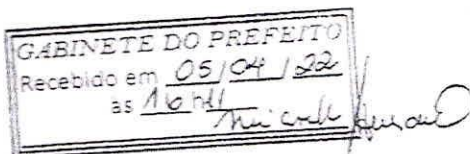 GABINETE DO PREFEITO
Recebido em 05/04/22
as 16 h